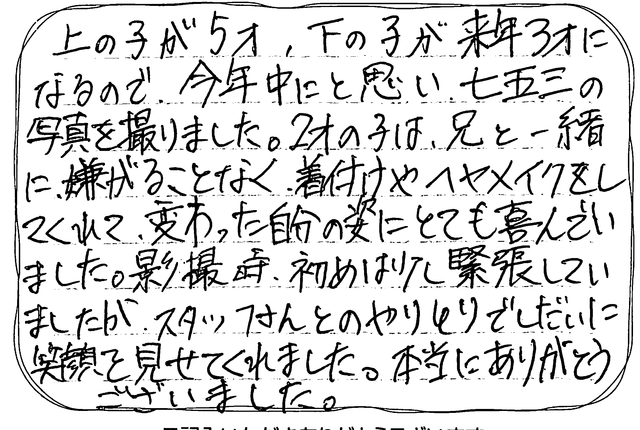 上の子が5才、下の子が来年3才に
なるので、今年中にと思い、七五三の
写真を撮りました。2才の子は、兄と一緒
に、嫌がることなく、着付けやヘヤメイクをし
てくれて、変わった自分の姿にとても喜んでい
ました。影撮時、初めは少し緊張してい
ましたが、スタッフさんとのやりとりでしだいに
笑顔を見せてくれました。本当にありがとう
ございました。